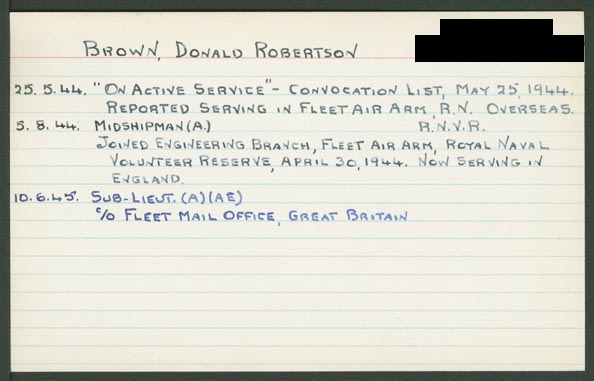 BROWN, DONALD ROBERTSON
25.5.44. "ON ACTIVE SERVICE" - CONVOCATION LIST, MAY 25, 1944.
REPORTED SERVING IN FLEET AIR ARM, R.N. OVERSEAS.
5.8.44. MIDSHIPMAN (A.) R.N.V.R.
JOINED ENGINEERING BRANCH, FLEET AIR ARM, ROYAL NAVAL
VOLUNTEER RESERVE, APRIL 30, 1944. NOW SERVING IN
ENGLAND.
10.6.45. SUB-LIEUT. (A)(AE)
c/o FLEET MAIL OFFICE, GREAT BRITAIN